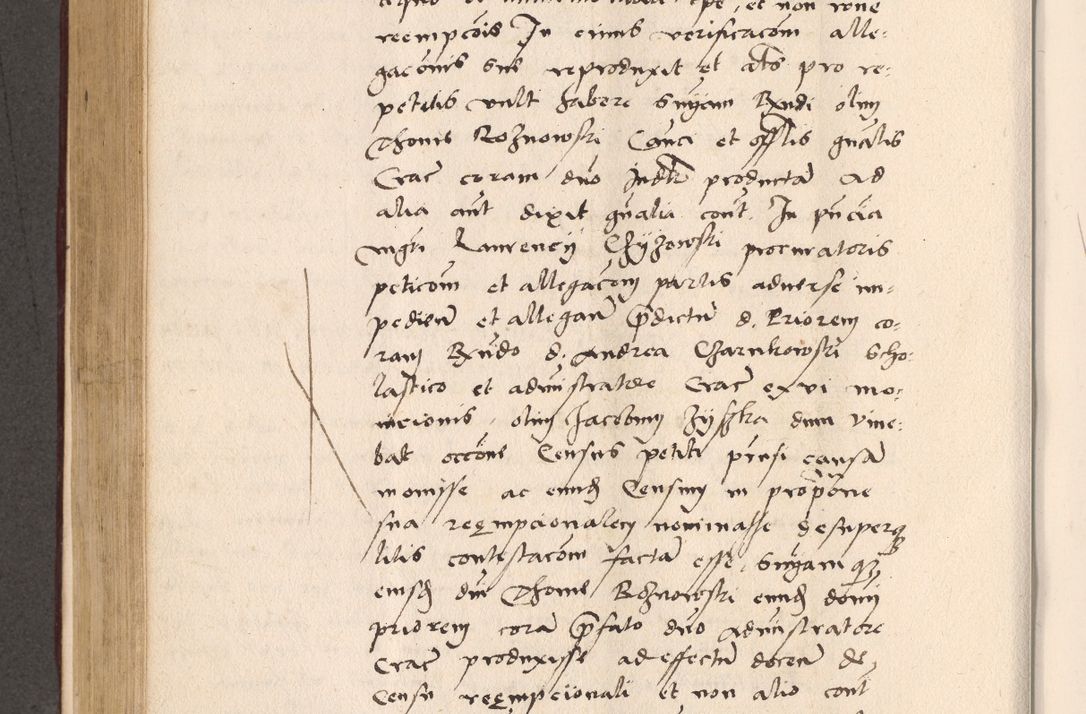 reempcois In eimus verificacom alle-
gacionis sue reproduxit et acts pro re-
petitis vult habere Sniam Rndi olim
Thome Rosznowski Canci et offlis gnalis
Crac coram dno Judice producta Ad
alia aut dixit gnalia cont. In pncia
mgri Laurencij Chijzowski procuratoris
peticom et allegacom partis adverse im-
pedien et allegan pdictu d. Priorem co-
ram Rndo d. Andrea Czarnkowski Scho-
lastico et administratore Crac ex vi mo-
nicionis olim Jacobum Zyszka dum vive-
bat occone Census petiti pnsi causa
movisse ac eund Censum in propone
sua reempcionalem nominasse desuperq
litis contestacom facta esse, Sniam qz
eiusd dni Thome Rosznowski eund domi
priorem cora pfato dno Administratore
Crac produxisse ad effectu docen de
Censu reempcionali et non alio cont